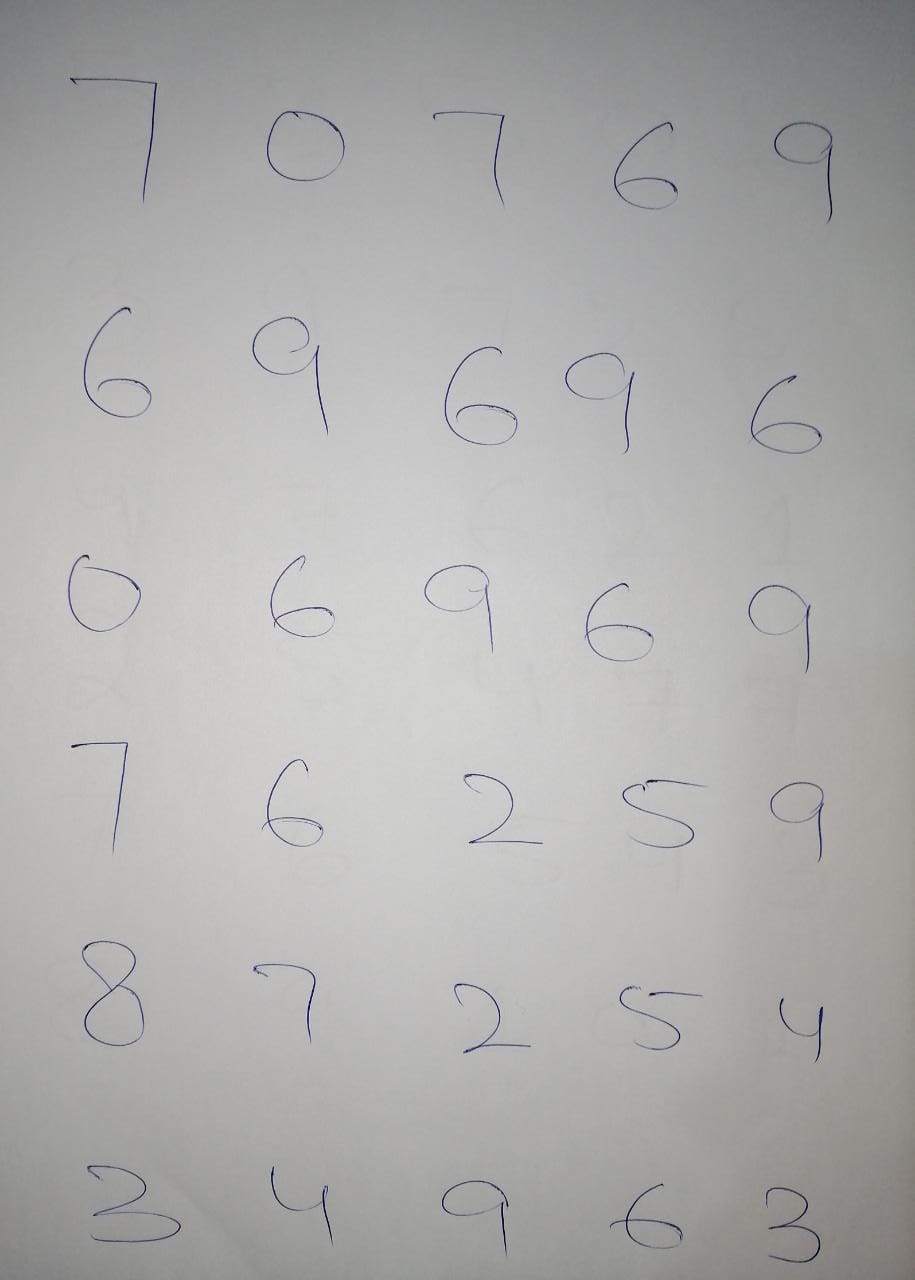 7 0 7 6 9
6 9 6 9 6
0 6 9 6 9
7 6 2 5 9
8 7 2 5 4
3 4 9 6 3